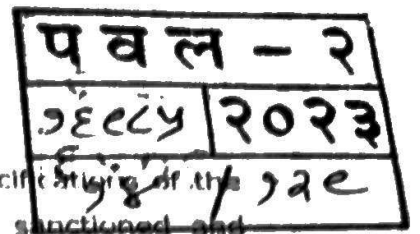 पवल - २
१६९८५ २०२३
१४ / १२९
of the
sanctioned and